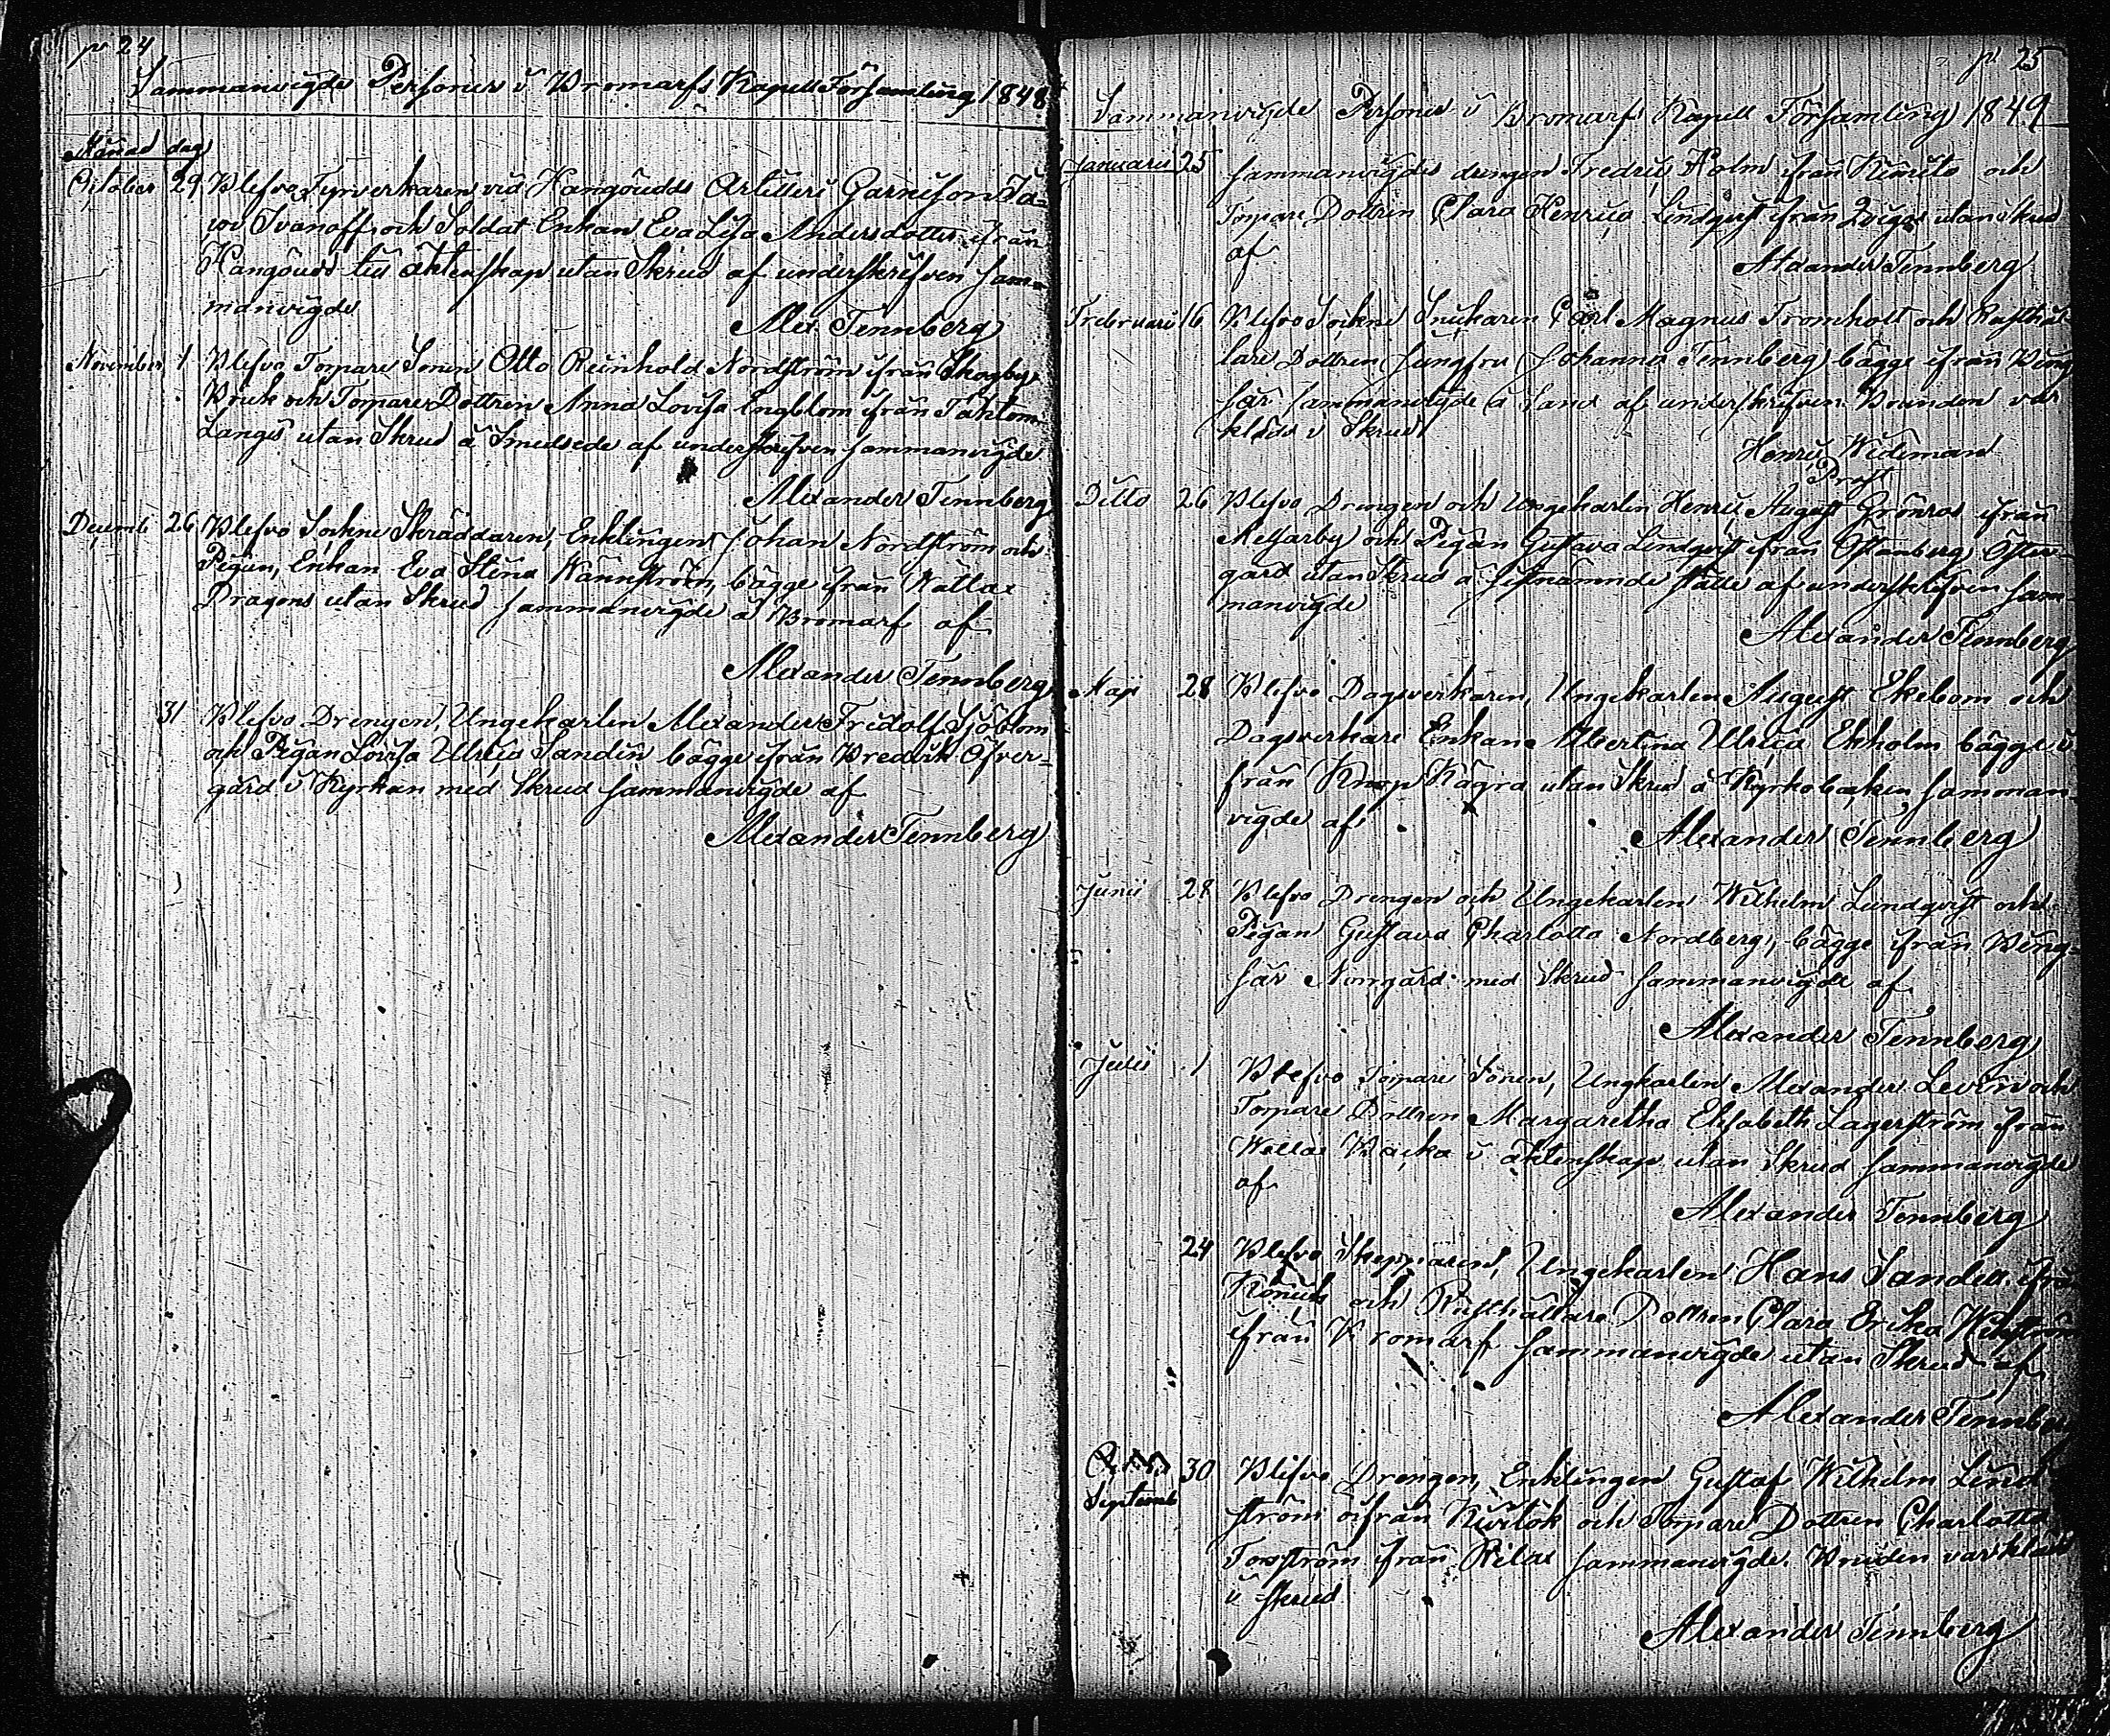 p 24
Sammanvigde Personer i Bromarfs Kapell Församling 1848
Månad dag
October 29 Blefvo Fyrverkaren vid Hangöudds Artilleri Garnison Ja-
Ivanoff och Soldat Enkan Eva Lisa Andersdotter ifrån
Hangöudd till äktenskap utan Skrud af underskrifven sam-
manvigde
Alex. Tennberg
November 1 Blefvo Torpare Sonen Otto Reinhold Nordström ifrån Skogby
Bruk och Torpare Dottren Anna Lovisa Engblom ifrån Täktom
Langis utan Skrud å Smedsede af underskrifven sammanvigde
Alexander Tennberg
Decemb 26 Blefvo Sockne Skräddaren, Enklingen Johan Nordström och
Pigan, Enkan Eva Stina Wännström, bägge ifrån Källa
Dragons utan Skrud sammanvigde å Bromarf af
Alexander Tennberg
31 Blefvo Drengen, Ungekarlen Alexander Fridolf Sjöblom
och Pigan Lovisa Ulrica Sandin bägge ifrån Bredvik Öfver-
gård i Kyrkan med Skrud sammanvigde af
Alexander Tennberg
p 25
Sammanvigde Personer i Bromarfs Kapell Församling 1849
Januarii 25 sammanvigdes drengen Fredric Holm ifrån Kimito och
Torpare Dottren Clara Henrica Lindqvist ifrån utan skrud
af
Alexander Tennberg
Februarii 16 Blefvo Sockne Snickaren Carl Magnus Tromholt och Rusthål-
lare Dottren Jungfru Johanna Tennberg bägge ifrån Beng
sår sammanvigde å Sand af underskrifven. Bruden var
klädd i Skrud
Henric Wideman
Prost
Ditto 26 Blefvo Drengen och Ungekarlen Henric August Grönros ifrån
Kelfarby och Pigan Gustava Lindqvist ifrån Öfvanberg Öster-
gård utan Skrud å sistnämnde ställe af underskrifven sam-
manvigde
Alexander Tennberg
Maji 28 Blefvo Dagsverkaren, Ungekarlen August Ekebom och
Dagsverkare Enkan Albertina Ulrica Ekholm bägge i
från Knop Kägra utan Skrud å Kyrkobacken samman-
vigde af
Alexander Tennberg
Junii 28 Blefvo Drengen och Ungekarlen Wilhelm Lundqvist och
Pigan Gustava Charlotta Nordberg, bägge ifrån Beng-
sår Norrgård med Skrud sammanvigde af
Alexander Tennberg
Julii 1 Blefvo Torpare Sonen, Ungkarlen Alexander Levin och
Torpare Dottren Margaretha Elisabeth Lagerström ifrån
Wättla Backa i äktenskap utan Skrud sammanvigde
af
Alexander Tennberg
24 Blefvo Skepparen, Ungekarlen Hans Sandell ifrån
och Rusthållare Dottren Clara Erika Wikström
ifrån Bromarf sammanvigde utan Skrud af
Alexander Tennberg
Septemb 30 Blefvo Drengen, Enklingen Gustaf Wilhelm Lind
ström ifrån Kivitok och Torpare Dottren Charlotta
Torström ifrån Rilax sammanvigde. Bruden var klädd
i skrud
Alexander Tennberg